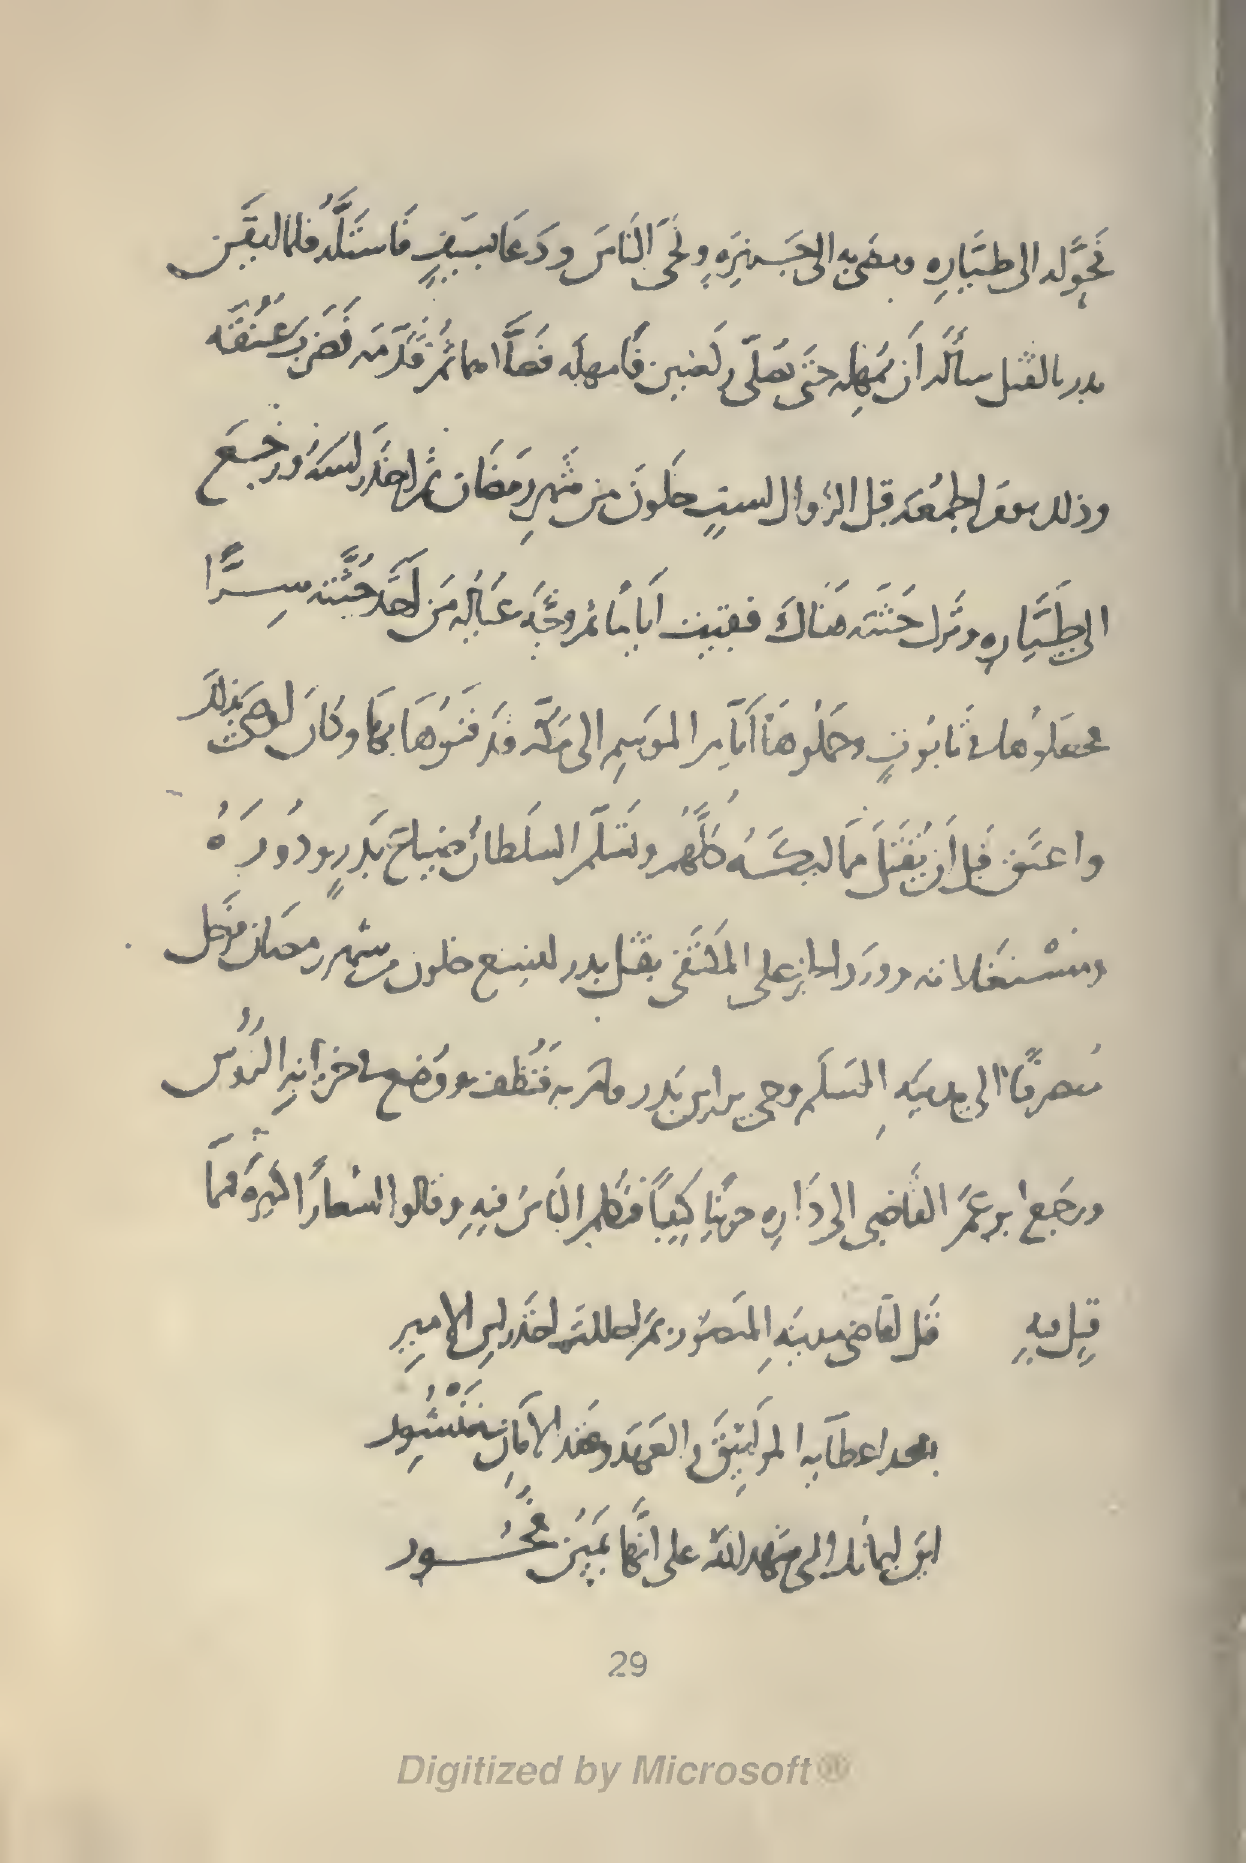 فحوّله الى طيّاره ومضى به الى جزيرة ونحّى النّاس ودعا بسيف فاستلّه فلما ايقن
بدر بالقتل سأله أن يُمهله حتّى يصلّى ركعتين فأمهله فصلّاهما ثمّ قدّمه فضرب عنقه
وذلك يوم الجمعة قبل الزوال لست خلون من شهر رمضان ثم اخذ رأسه ورجع
الى طيّاره وترك جثته هناك فبقيت ايّاما ثم وجّه عياله من أخذ جثته سرّا
فجعلوها فى تابوت وحملوها أيام الموسم الى مكّة فدفنوها بها وكان اوصى بذلك
واعتق قبل أن يُقتل مماليكه كلّهم وتسلّم السلطان ضياع بدر ودوره
ومستغلاته وورد الخبر على المكتفى بقتل بدر لسبع خلون من شهر رمضان فرحل
منصرفًا الى مدينة السلم وجىء براس بدر وامر به فنُظّف ووُضع فى خزانة الرؤس
ورجع ابو عمر القاضى الى داره حزينا كئيبًا فتكلم الناس فيه وقالوا اشعارًا كثيرة فممّا
قيل فيه قل لقاضى مدينة المنصور بم احللت اخذ راس الامير
بعد اعطائه المواثيق والعهد وعقد الامان فى منشور
اين ايمانك التى شهد الله على انّها يمين فجُور
29
Digitized by Microsoft®